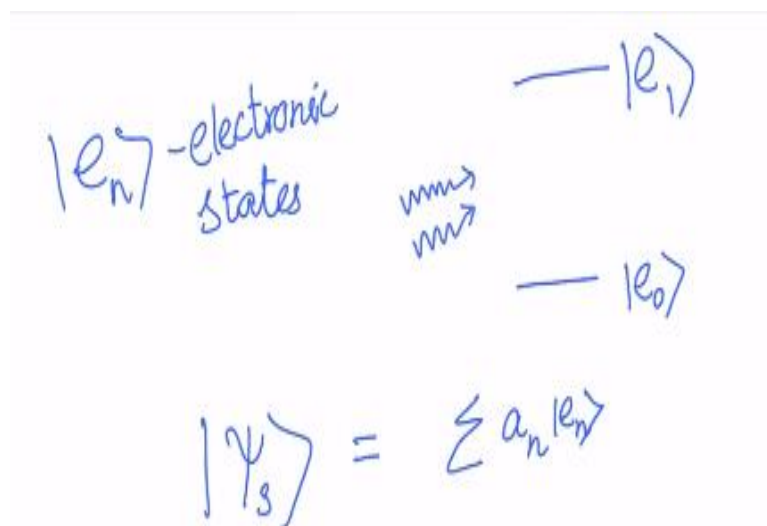 |e₁⟩
|eₙ⟩ - electronic
states
|e₀⟩
|ψₛ⟩ = Σ aₙ|eₙ⟩